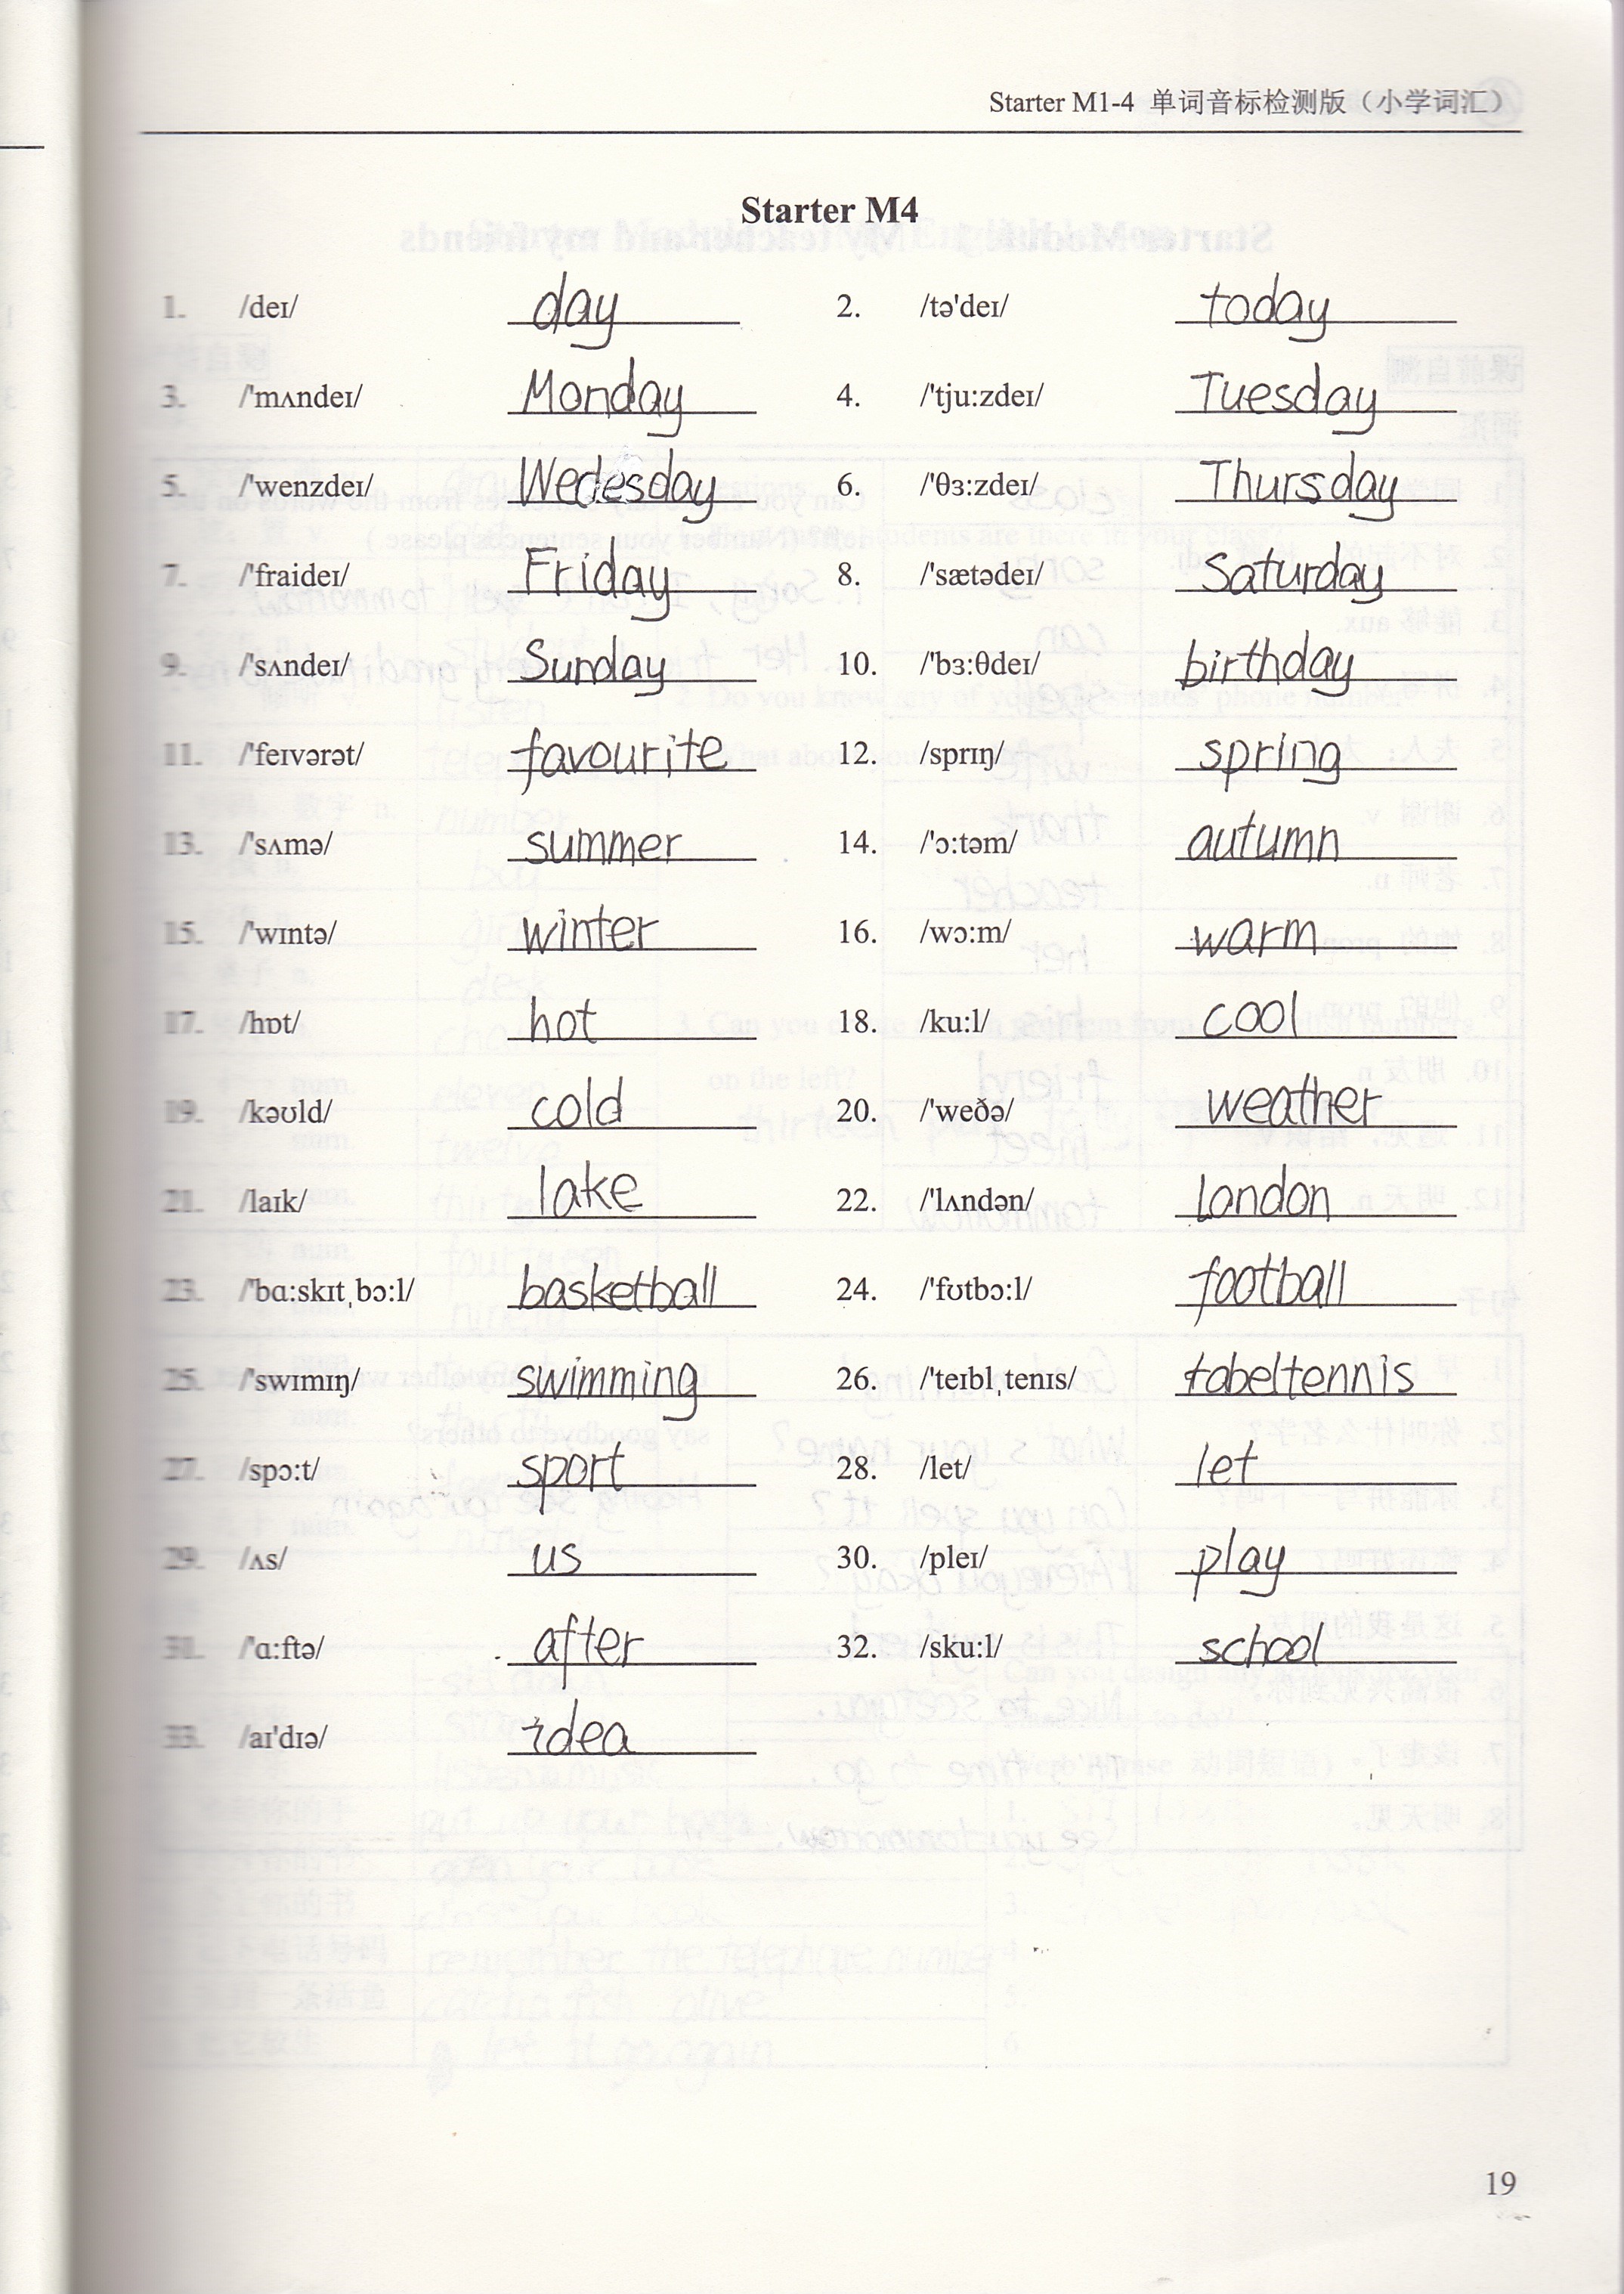 Starter M1-4 单词音标检测版（小学词汇）
Starter M4
1. /deɪ/ day 2. /tə'deɪ/ today
3. /'mʌndeɪ/ Monday 4. /'tju:zdeɪ/ Tuesday
5. /'wenzdeɪ/ Wedesday 6. /'θɜ:zdeɪ/ Thursday
7. /'fraideɪ/ Friday 8. /'sætədeɪ/ Saturday
9. /'sʌndeɪ/ Sunday 10. /'bɜ:θdeɪ/ birthday
11. /'feɪvərət/ favourite 12. /sprɪŋ/ spring
13. /'sʌmə/ summer 14. /'ɔ:təm/ autumn
15. /'wɪntə/ winter 16. /wɔ:m/ warm
17. /hɒt/ hot 18. /ku:l/ cool
19. /kəʊld/ cold 20. /'weðə/ weather
21. /laɪk/ lake 22. /'lʌndən/ london
23. /'bɑ:skɪtˌbɔ:l/ basketball 24. /'fʊtbɔ:l/ football
25. /'swɪmɪŋ/ swimming 26. /'teɪblˌtenɪs/ tabeltennis
27. /spɔ:t/ sport 28. /let/ let
29. /ʌs/ us 30. /pleɪ/ play
31. /'ɑ:ftə/ after 32. /sku:l/ school
33. /aɪ'dɪə/ idea
19